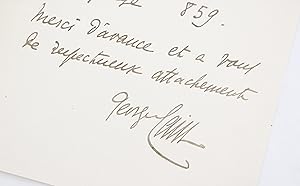 859.
merci d'avance et a vous
de respectueux attachement
Georges